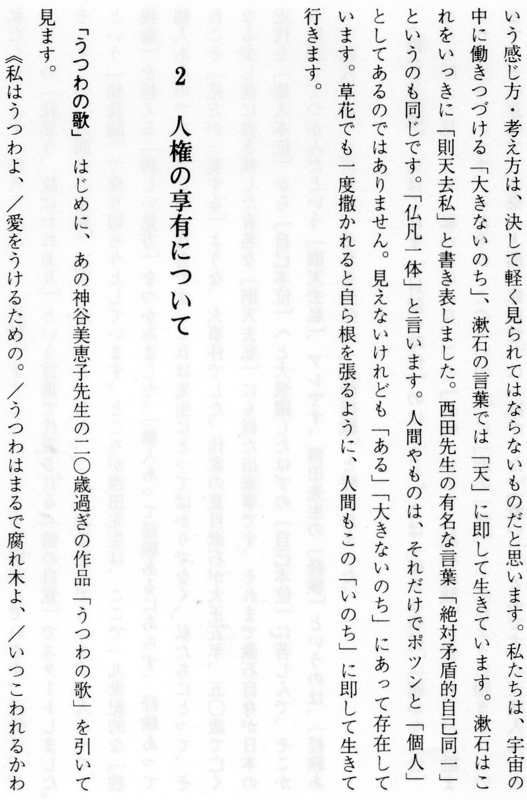 いう感じ方・考え方は、決して軽く見られてはならないものだと思います。私たちは、宇宙の
中に働きつづける「大きないのち」、漱石の言葉では「天」に即して生きています。漱石はこ
れをいっきに「則天去私」と書き表しました。西田先生の有名な言葉「絶対矛盾的自己同一」
というのも同じです。「仏凡一体」と言います。人間やものは、それだけでポツンと「個人」
としてあるのではありません。見えないけれども「ある」「大きないのち」にあって存在して
います。草花でも一度撒かれると自ら根を張るように、人間もこの「いのち」に即して生きて
行きます。
2 人権の享有について
「うつわの歌」 はじめに、あの神谷美恵子先生の二〇歳過ぎの作品「うつわの歌」を引いて
見ます。
《私はうつわよ、／愛をうけるための。／うつわはまるで腐れ木よ、／いつこわれるかわ